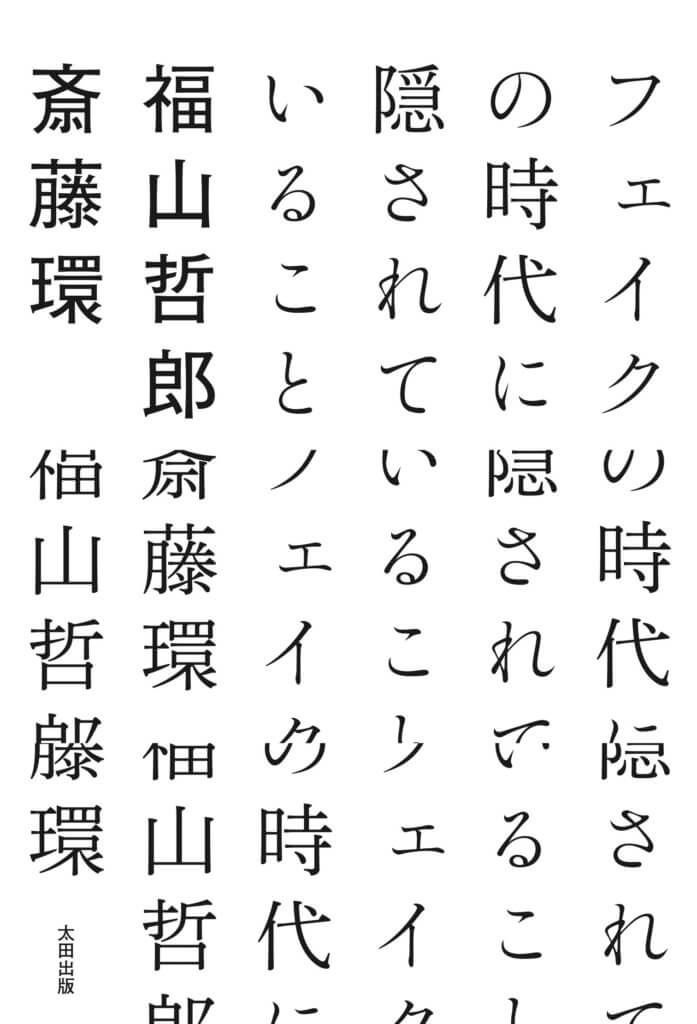 フェイク
の時代に
隠されて
いること
福山哲郎
斎藤環
の時代隠され
隠されるこ
いるこェイク
フェイ時代に
斎藤環福山哲郎
福山哲環
太田出版